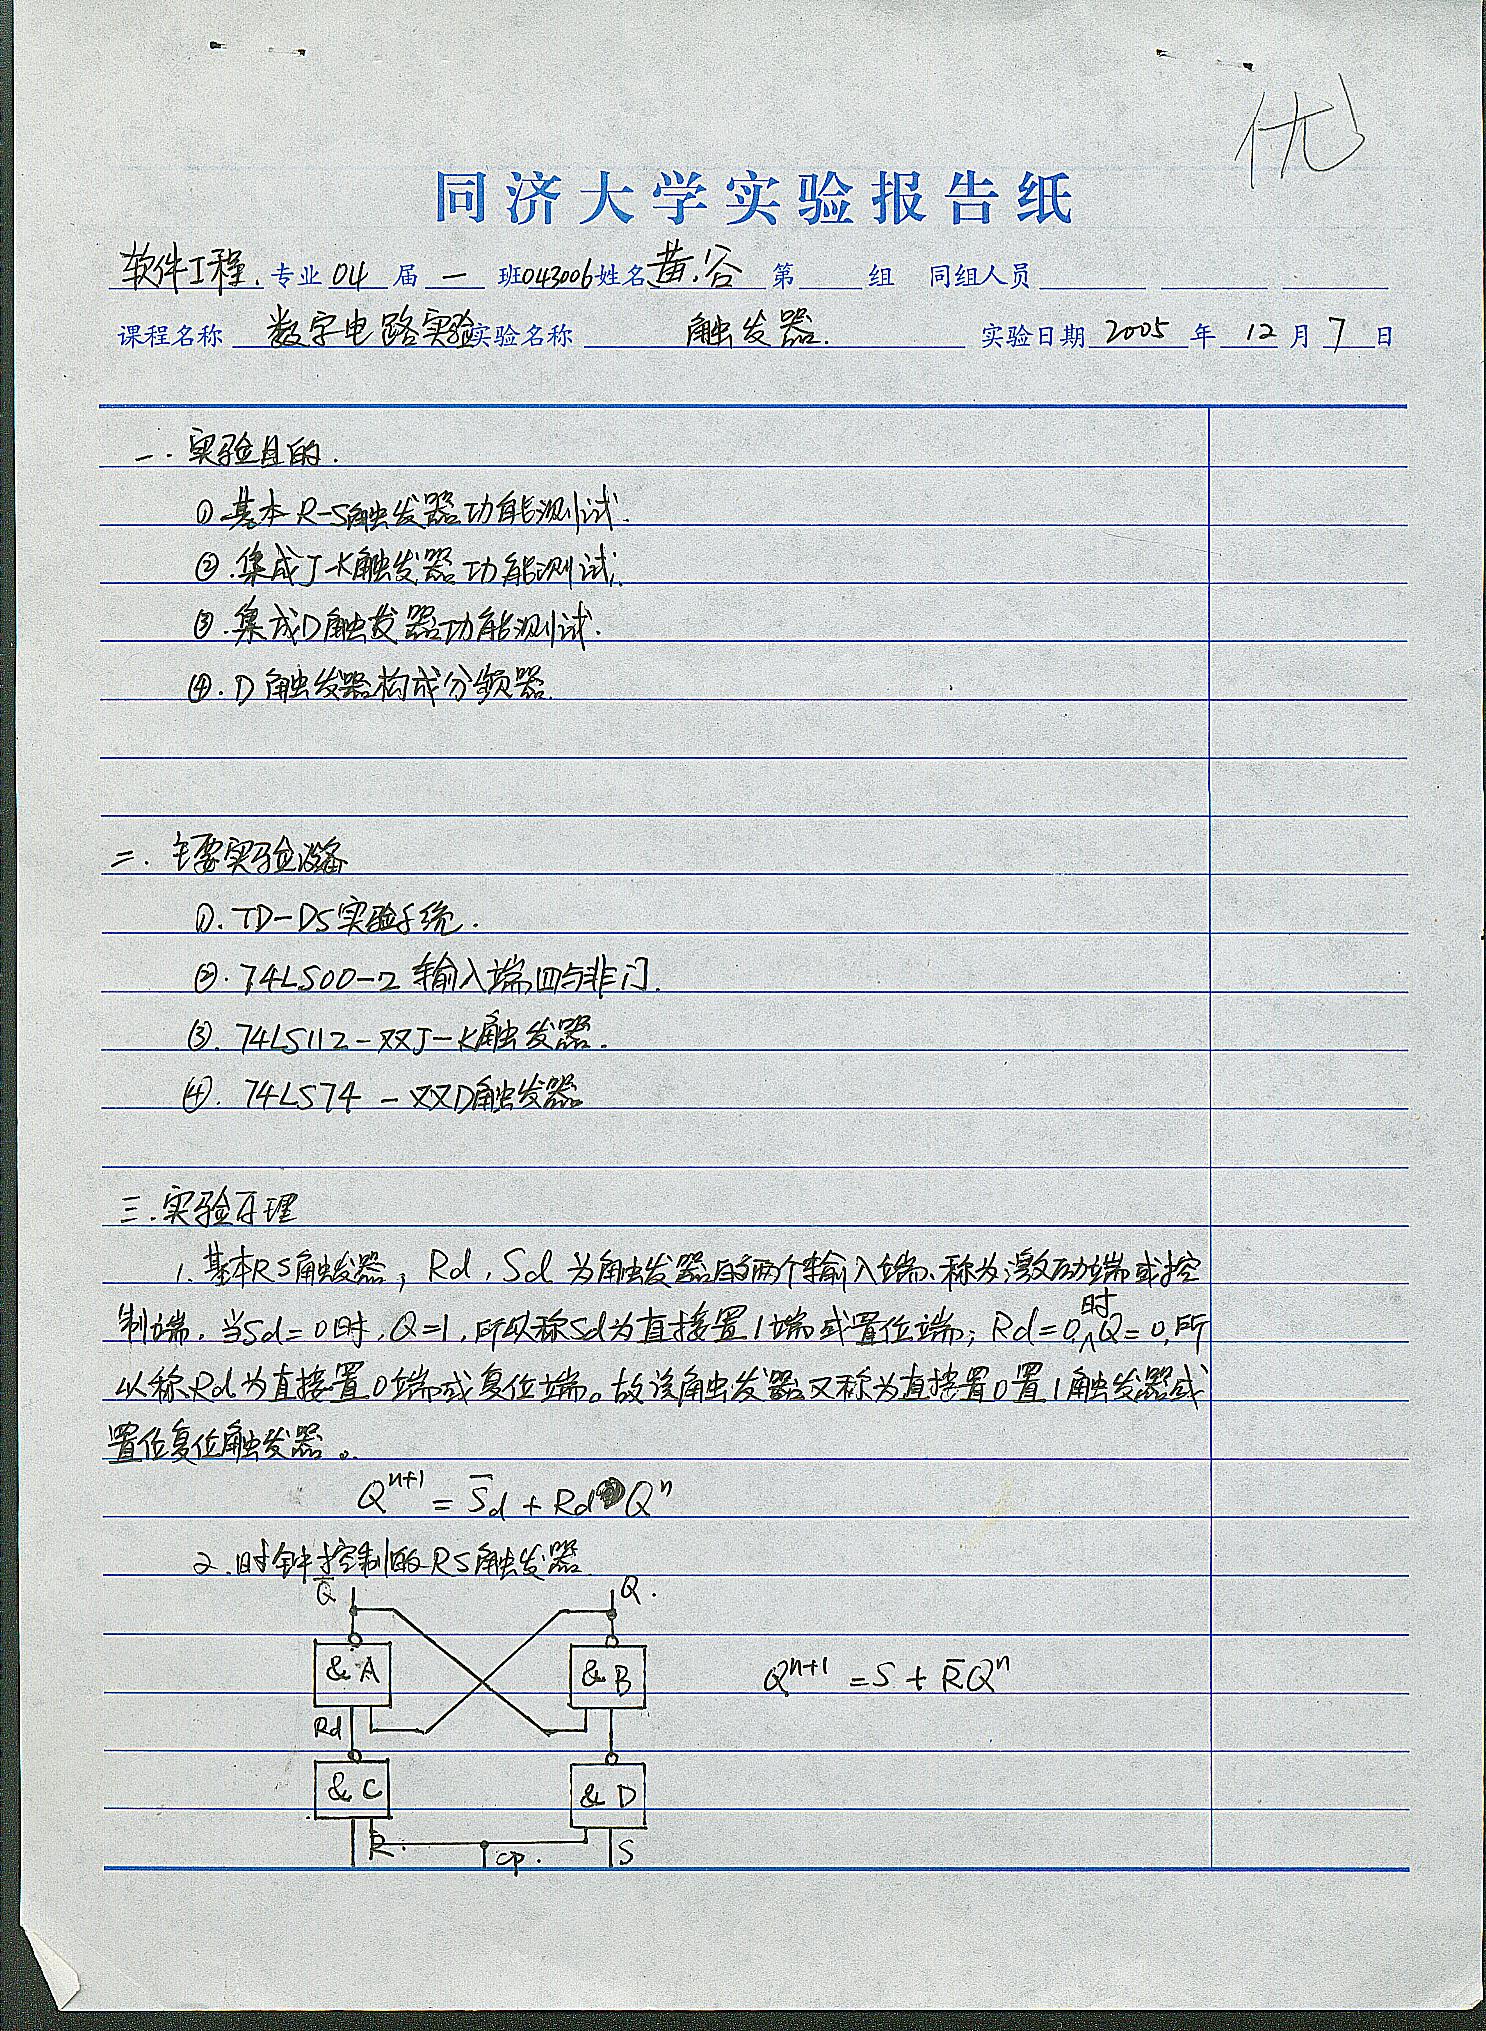 优
同济大学实验报告纸
软件工程. 专业 04 届 一 班 043006 姓名 黄谷 第 组 同组人员
课程名称 数字电路实验 实验名称 触发器. 实验日期 2005 年 12 月 7 日
一. 实验目的.
①.基本R-S触发器功能测试.
②.集成J-K触发器功能测试.
③.集成D触发器功能测试.
④.D触发器构成分频器.
二. 主要实验设备
①.TD-DS实验系统.
②.74LS00-2输入端四与非门.
③.74LS112-双J-K触发器.
④.74LS74-双D触发器
三.实验原理
1.基本RS触发器,Rd,Sd为触发器的两个输入端、称为激励端或控
制端.当Sd=0时,Q=1,所以称Sd为直接置1端或置位端;Rd=0时,Q=0,所
以称Rd为直接置0端或复位端。故该触发器又称为直接置0置1触发器或
置位复位触发器。
Qⁿ⁺¹ = S̅d + Rd Qⁿ
2.时钟控制的RS触发器.
Q̅ Q.
&A &B Qⁿ⁺¹ = S + R̅Qⁿ
Rd
&C &D
R. cp. S